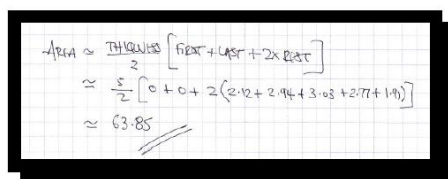 AREA ≈ THICKNESS/2 [FIRST + LAST + 2 x REST]
≈ 5/2 [0 + 0 + 2(2.12 + 2.94 + 3.03 + 2.77 + 1.91)]
≈ 63.85